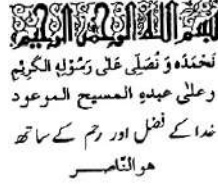 بسم الله الرحمن الرحیم
نحمده و نصلی علی رسوله الکریم
وعلٰی عبده المسیح الموعود
خدا کے فضل اور رحم کے ساتھ
هو النّاصر